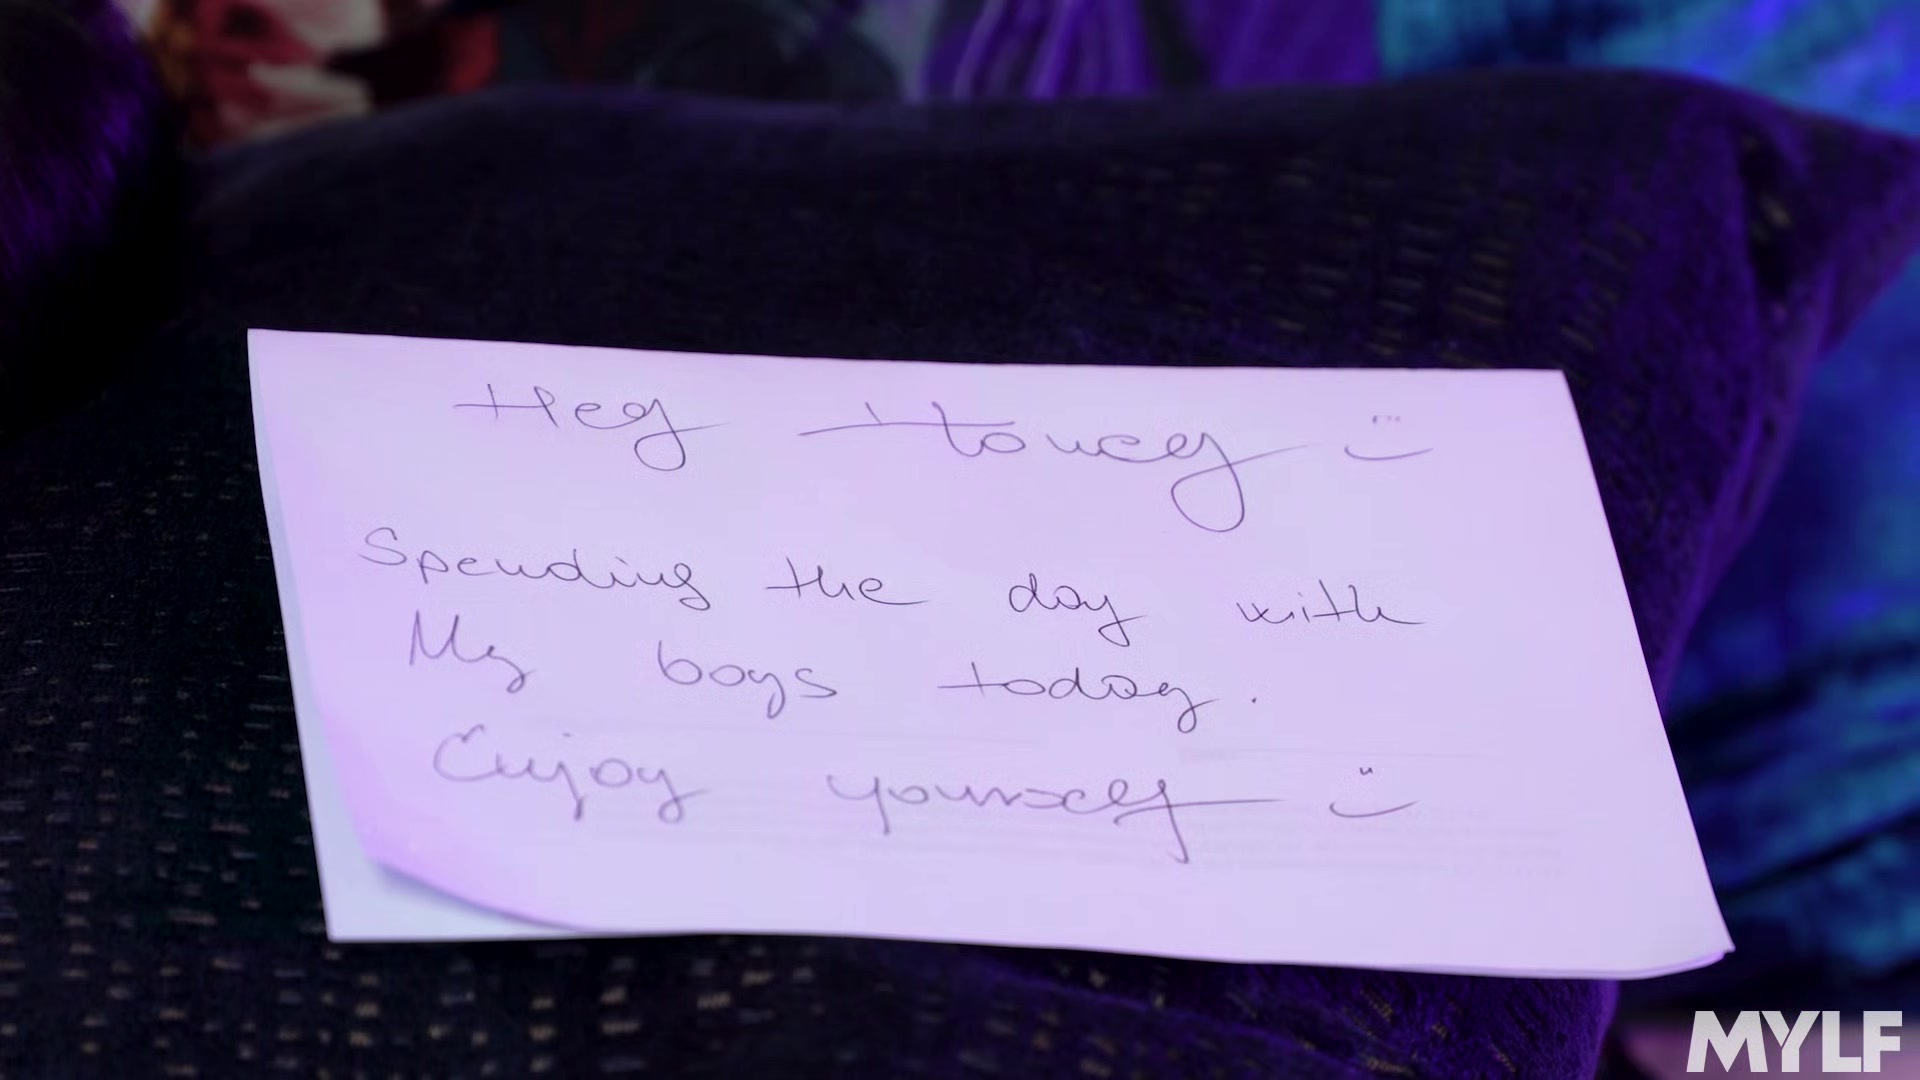 Hey Honey :)
Spending the day with
My boys today.
Enjoy yourself :)
MYLF